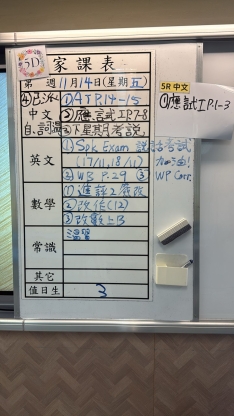 5D
家課表
週 11月14日(星期五)
④已派 ①AJ P.14-15
中文 ②應試 IP.7-8
自、詞 ③下星期考說
英文 ①Spk Exam 說話考試
(17/11,18/11) 加油!
②WB P.29 ③ WP Corr.
數學 ①進評2簽改
②改作(12)
③改數上B
常識 溫習
其它
值日生 3
5R 中文
①應試IP.1-3